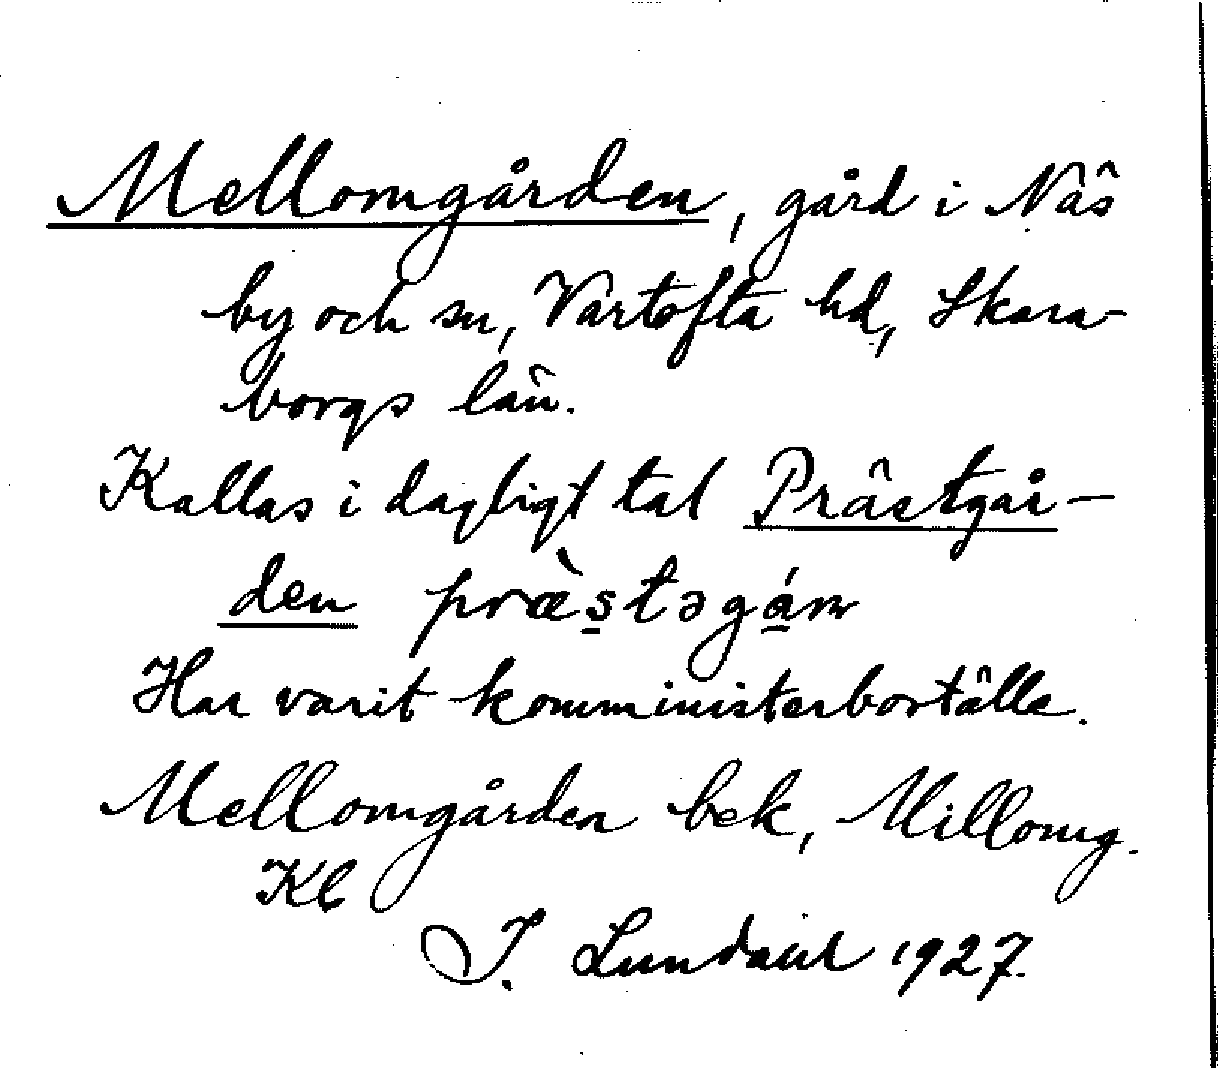 Mellomgården, gård i Näs
by och sn, Vartofta hd, Skara-
borgs län.
Kallas i dagligt tal Prästgår-
den præ̀s̱təgá̱ṟn
Har varit komministerboställe.
Mellomgården bek, Millomg.
Kl
J. Lundahl 1927.